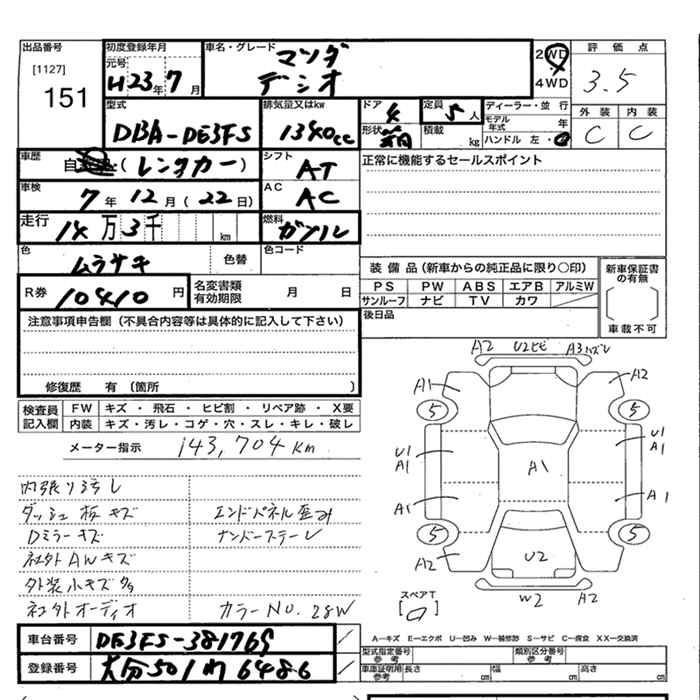 出品番号
[1127]
151
初度登録年月
元号
H23年7月
車名・グレード
マツダ
デミオ
2WD
4WD
評価点
3.5
型式
DBA-DE3FS
排気量又はkw
1340cc
ドア
4
形状
定員
5人
積載
kg
ディーラー・並行
モデル年式
年
ハンドル 左・右
外装
C
内装
C
車歴
(レンタカー)
シフト
AT
正常に機能するセールスポイント
車検
7年12月(22日)
AC
AC
走行
14万3千
km
燃料
ガソリン
色
ムラサキ
色替
色コード
装備品(新車からの純正品に限り○印)
PS PW ABS エアB アルミW
サンルーフ ナビ TV カワ
新車保証書の有無
車載不可
R券
10410円
名変書類有効期限
月 日
後日品
注意事項申告欄(不具合内容等は具体的に記入して下さい)
修復歴 有(箇所 )
検査員記入欄
FW キズ・飛石・ヒビ割・リペア跡・X要
内装 キズ・汚レ・コゲ・穴・スレ・キレ・破レ
メーター指示 143,704 Km
内張り汚レ
ダッシュ板キズ エンドパネル歪み
Dミラーキズ ナンバーステーレ
社外AWキズ
外装小キズ多
社外オーディオ カラーNO.28W
A2 U2ヒビ A3ハズレ
A1 A2
5 5
U1 A1
A1
U1 A1
A1 A1
5 5
A2 U2
W2 A2
スペアT
車台番号
DE3FS-381769
登録番号
大分501 わ 6486
A—キズ E—エクボ U—凹み W—補修跡 S—サビ C—腐食 XX—交換済
型式指定番号 参考
類別区分番号 参考
車庫証明用 参考
長さ cm 幅 cm 高さ cm